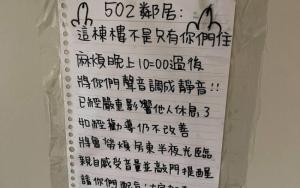 502鄰居:
這棟樓不是只有你們住
麻煩晚上10:00過後
將你們聲音調成靜音!!
已經嚴重影響他人休息了
如經勸導仍不改善
將會勞煩房東半夜光臨
親自感受音量並敲門提醒
請你們